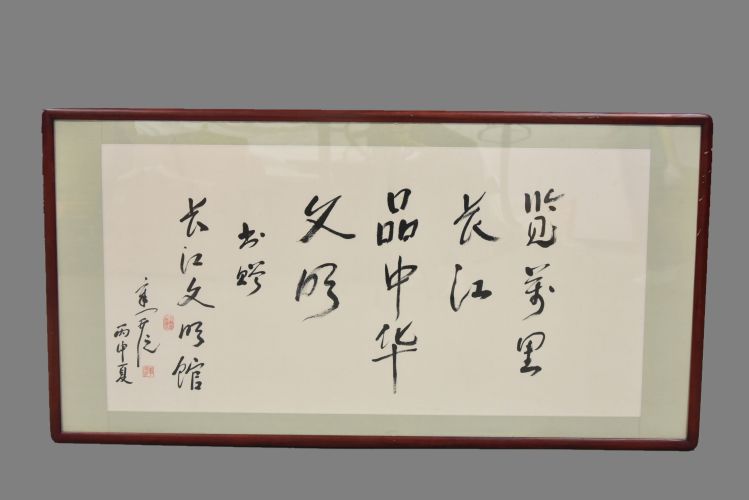 览萬里
长江
品中华
文明
书赠
长江文明馆
丙申夏